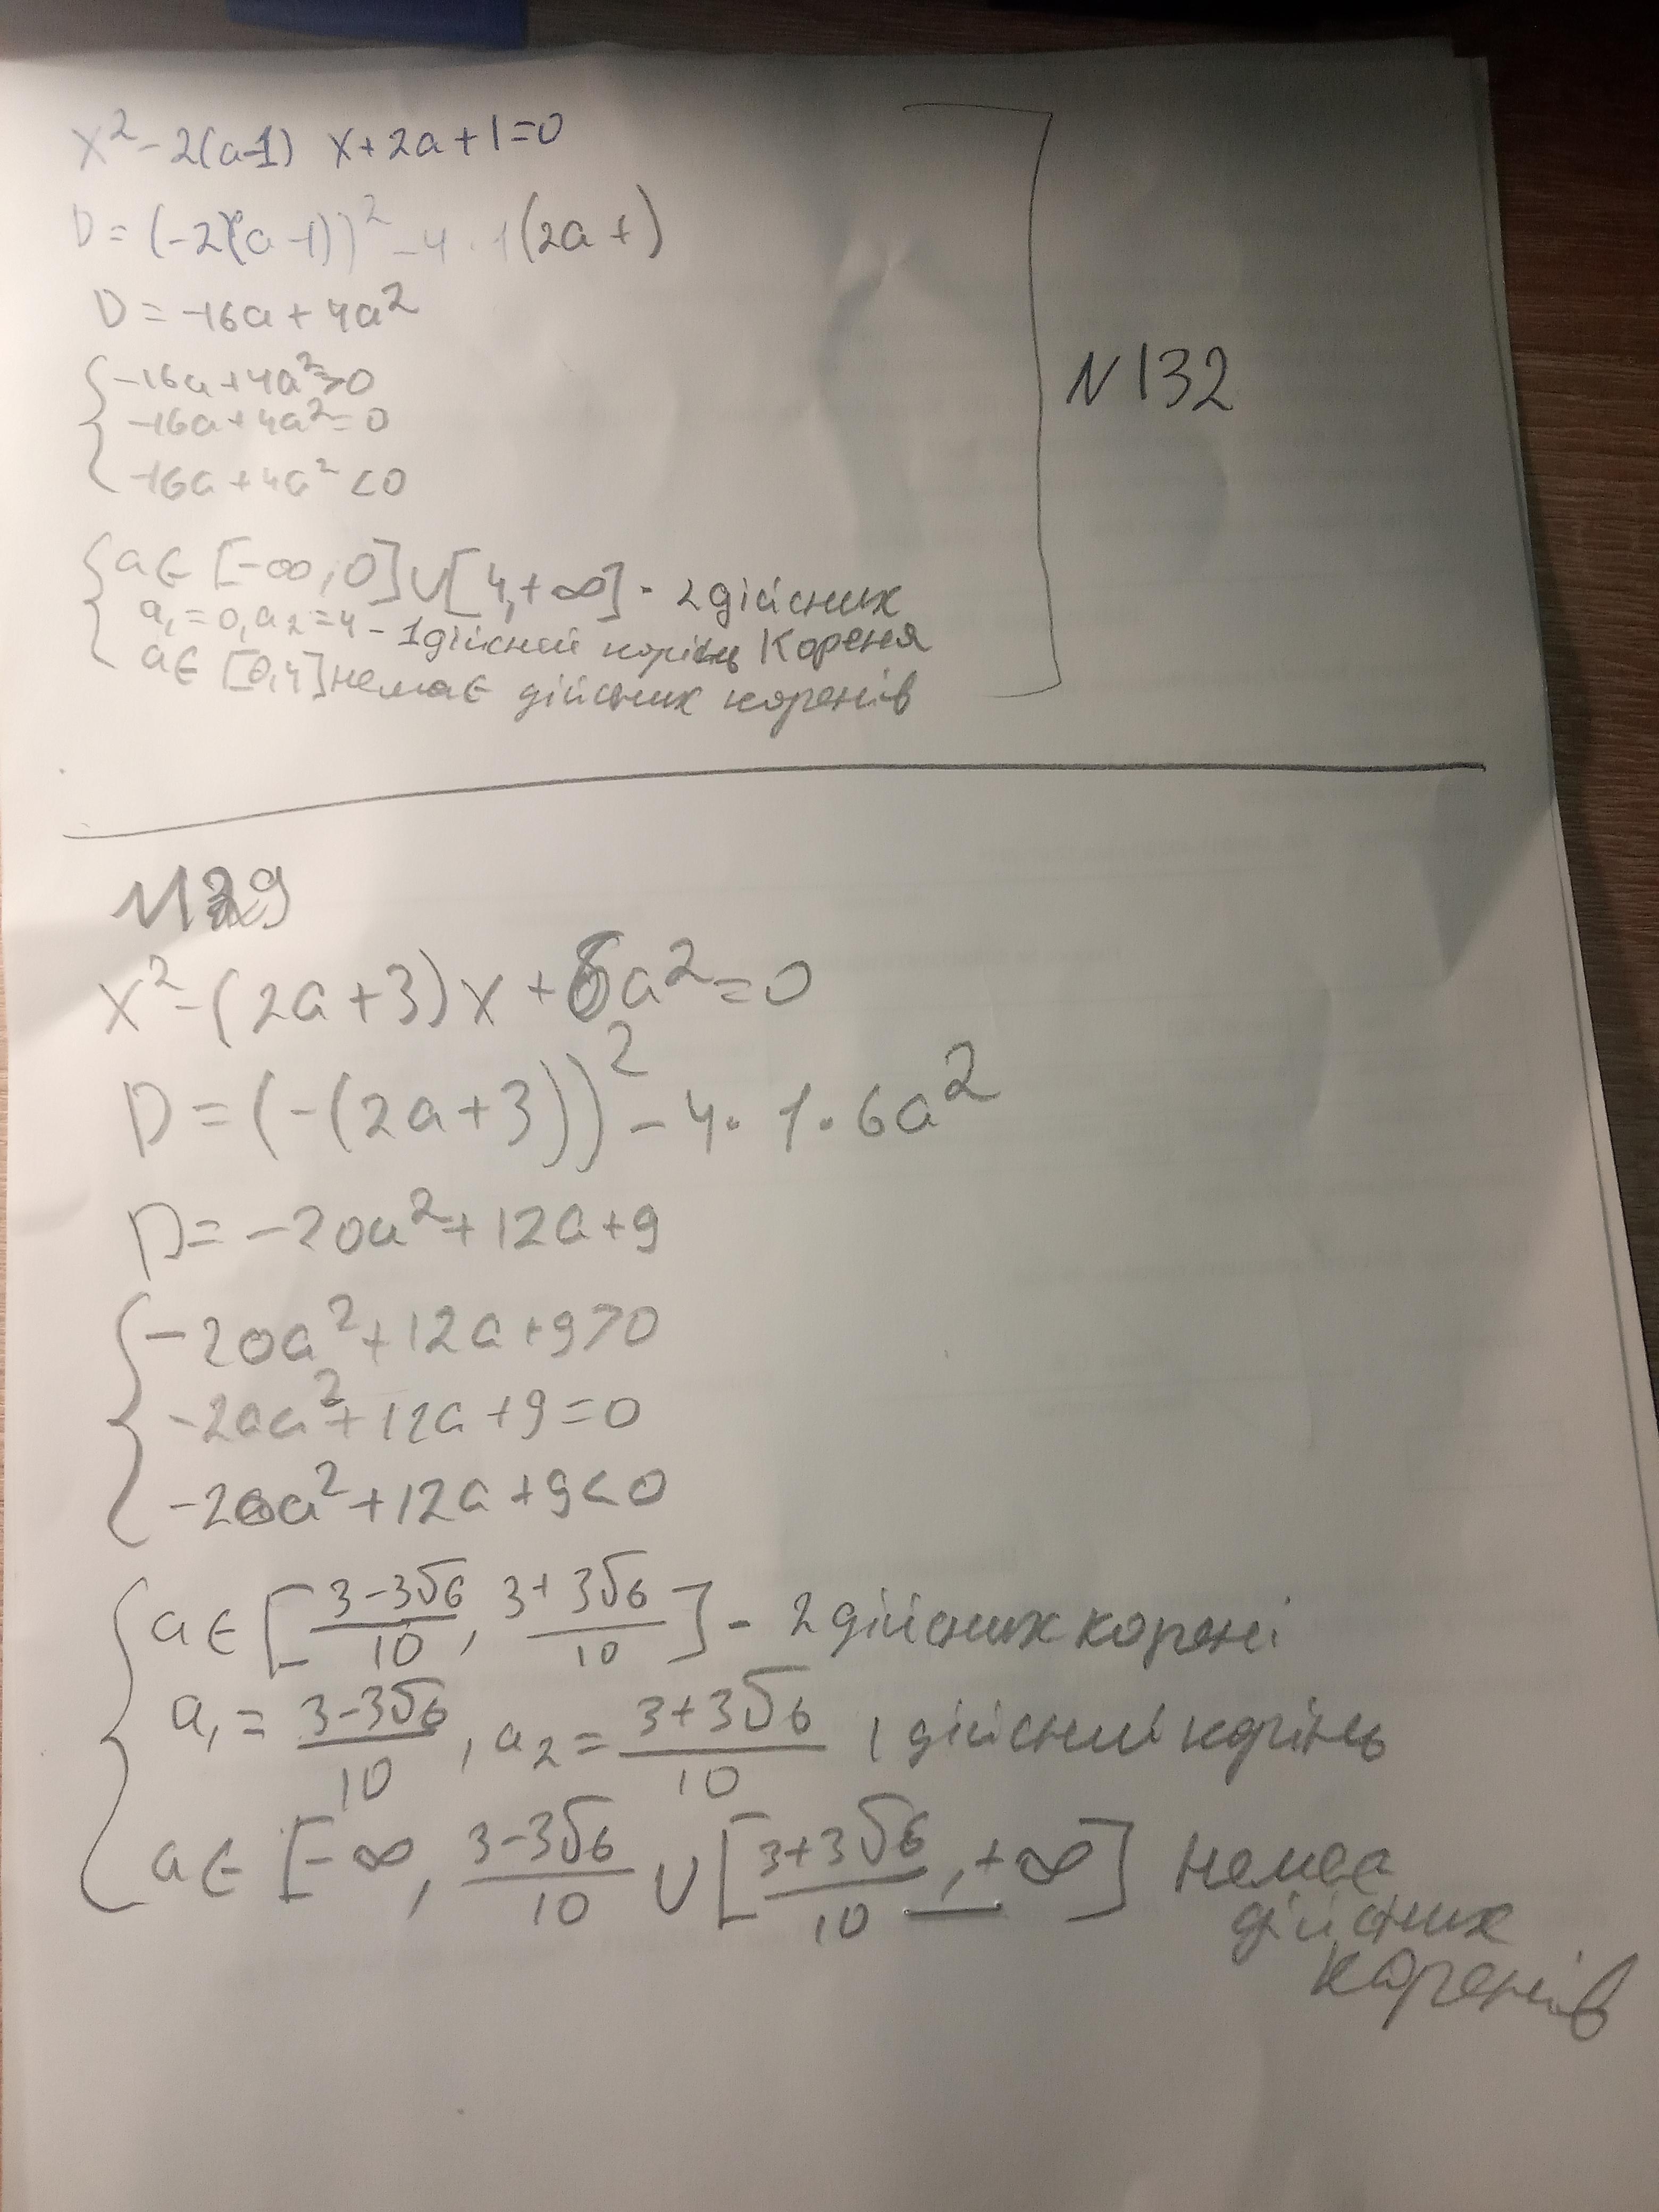 x² - 2(a-1) x + 2a + 1 = 0
D = (-2(a-1))² - 4 · 1(2a+)
D = -16a + 4a²
{ -16a + 4a² > 0
-16a + 4a² = 0
-16a + 4a² < 0
N132
{ a ∈ [-∞, 0] ∪ [4, +∞] - 2 дійсних
a₁ = 0, a₂ = 4 - 1 дійсний корінь Кореня
a ∈ [0, 4] немає дійсних коренів
x² - (2a+3)x + 6a² = 0
D = (-(2a+3))² - 4 · 1 · 6a²
D = -20a² + 12a + 9
{ -20a² + 12a + 9 > 0
-20a² + 12a + 9 = 0
-20a² + 12a + 9 < 0
{ a ∈ [(3-3√6)/10, (3+3√6)/10] - 2 дійсних корені
a₁ = (3-3√6)/10, a₂ = (3+3√6)/10 1 дійсний корінь
a ∈ [-∞, (3-3√6)/10 ∪ [(3+3√6)/10, +∞] немає
дійсних
коренів